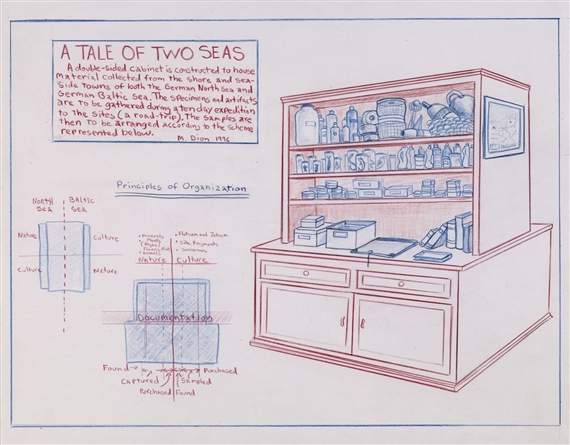 A TALE OF TWO SEAS
A double-sided cabinet is constructed to house
material collected from the shore and sea-
side towns of both the German North Sea and
German Baltic Sea. The specimens and artifacts
are to be gathered during a ten day expedition
to the sites (a road-trip). The samples are
then to be arranged according to the scheme
represented below.
M. Dion 1996
Principles of Organization
North Sea
Baltic Sea
Nature
Culture
Culture
Nature
• Minerals
• Plants
(Algae)
• animals
• Flotsam and Jetsam
• Side Enjoyments
• Souvenirs
Nature
Culture
Documentation
Found
Purchased
Captured
Sampled
Purchased
Found